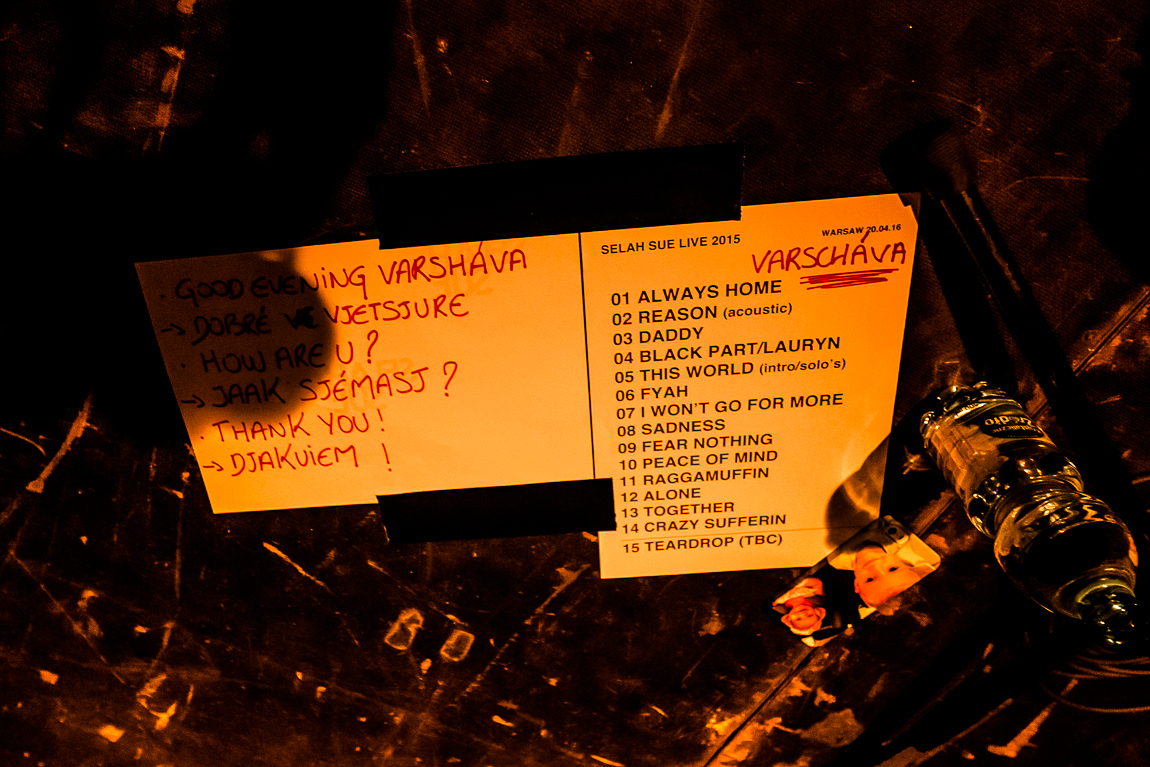 · GOOD EVENING VARSHÁVA
→ DOBRÉ VJETSJURE
· HOW ARE U?
→ JAAK SJÉMASJ?
· THANK YOU!
→ DJAKUIEM !
SELAH SUE LIVE 2015
WARSAW 20.04.16
VARSCHÁVA
01 ALWAYS HOME
02 REASON (acoustic)
03 DADDY
04 BLACK PART/LAURYN
05 THIS WORLD (intro/solo's)
06 FYAH
07 I WON'T GO FOR MORE
08 SADNESS
09 FEAR NOTHING
10 PEACE OF MIND
11 RAGGAMUFFIN
12 ALONE
13 TOGETHER
14 CRAZY SUFFERIN
15 TEARDROP (TBC)